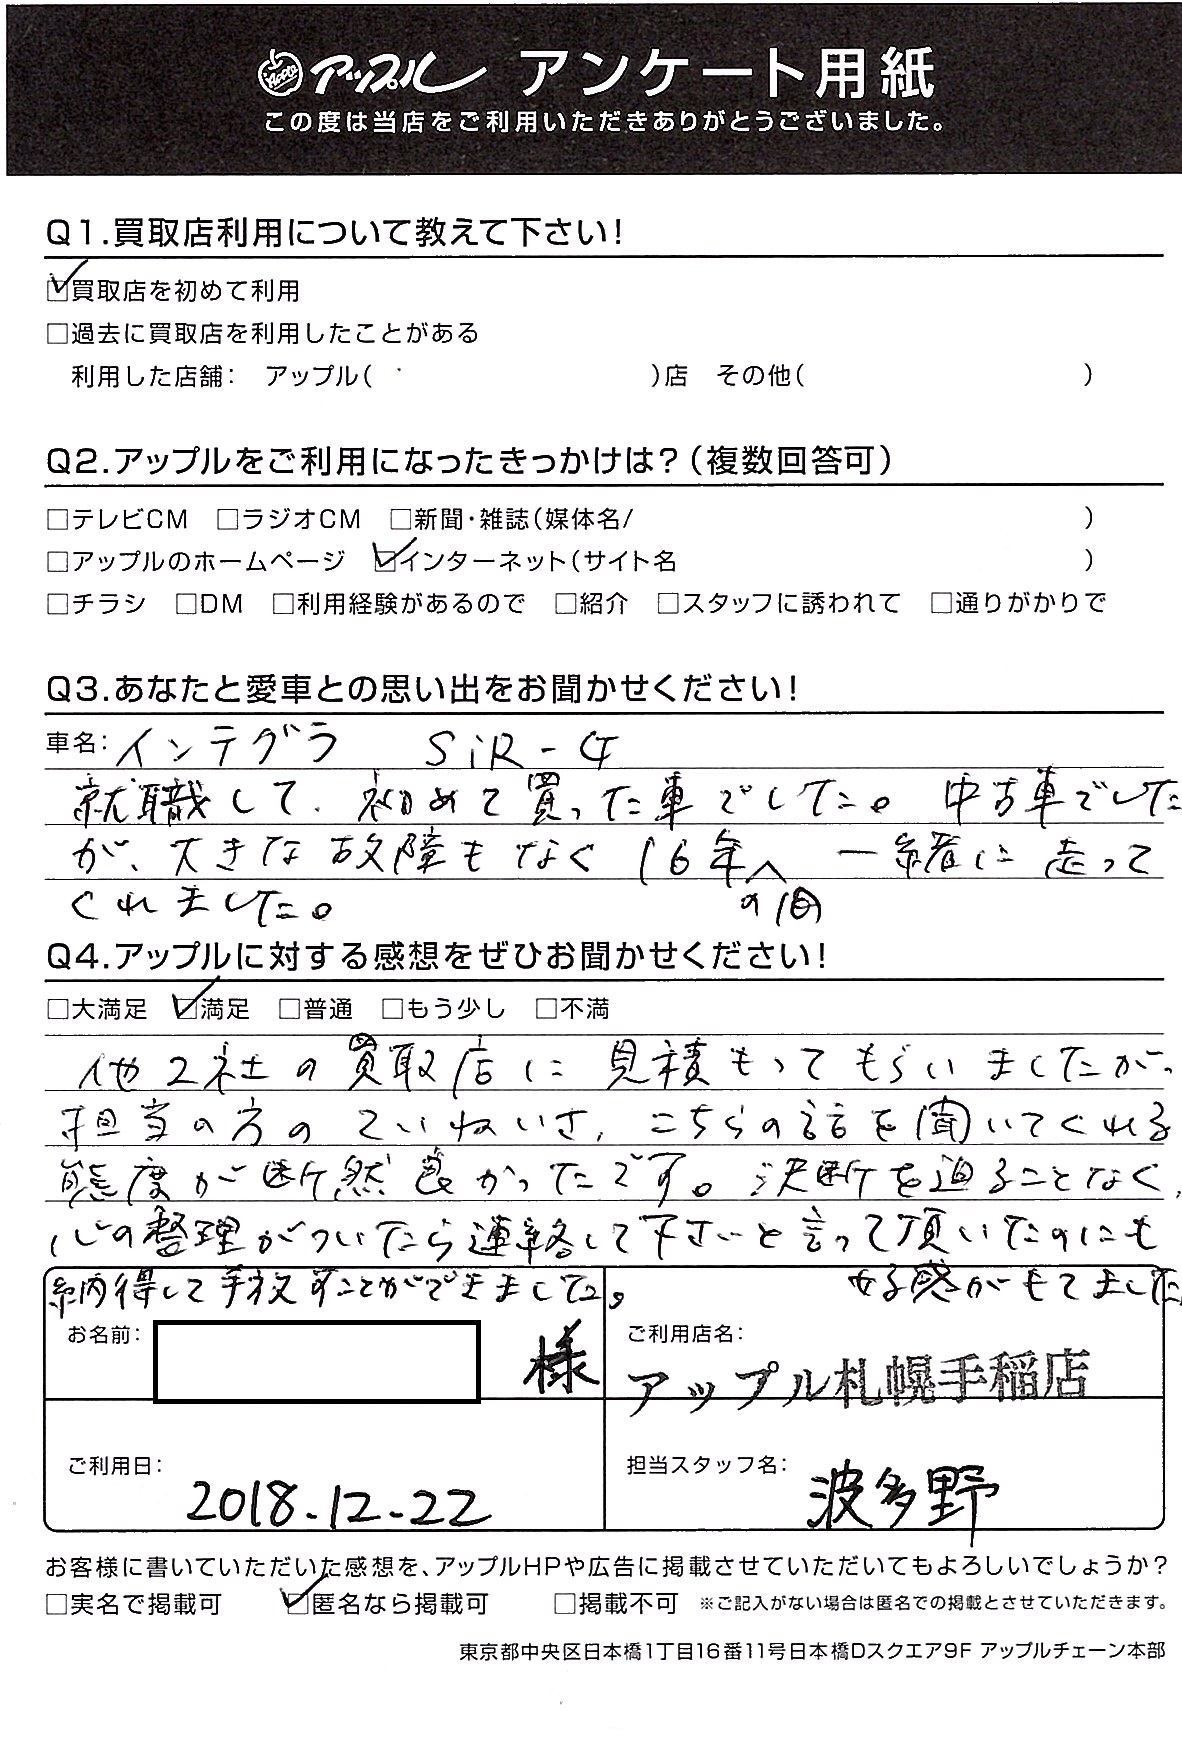 Apple アップル アンケート用紙
この度は当店をご利用いただきありがとうございました。
Q1.買取店利用について教えて下さい!
☑買取店を初めて利用
□過去に買取店を利用したことがある
利用した店舗: アップル( )店 その他( )
Q2.アップルをご利用になったきっかけは?(複数回答可)
□テレビCM □ラジオCM □新聞・雑誌(媒体名/ )
□アップルのホームページ ☑インターネット(サイト名 )
□チラシ □DM □利用経験があるので □紹介 □スタッフに誘われて □通りがかりで
Q3.あなたと愛車との思い出をお聞かせください!
車名: インテグラ SiR-G
就職して、初めて買った車でした。中古車でした
が、大きな故障もなく16年の間 一緒に走って
くれました。
Q4.アップルに対する感想をぜひお聞かせください!
□大満足 ☑満足 □普通 □もう少し □不満
他2社の買取店に見積もってもらいましたが、
担当の方のていねいさ、こちらの話を聞いてくれる
態度が断然良かったです。決断を迫ることなく、
心の整理がついたら連絡して下さいと言って頂いたのにも
好感がもてました
納得して手放すことができました。
お名前: 様
ご利用店名: アップル札幌手稲店
ご利用日: 2018.12.22
担当スタッフ名: 波多野
お客様に書いていただいた感想を、アップルHPや広告に掲載させていただいてもよろしいでしょうか?
□実名で掲載可 ☑匿名なら掲載可 □掲載不可 ※ご記入がない場合は匿名での掲載とさせていただきます。
東京都中央区日本橋1丁目16番11号日本橋Dスクエア9F アップルチェーン本部